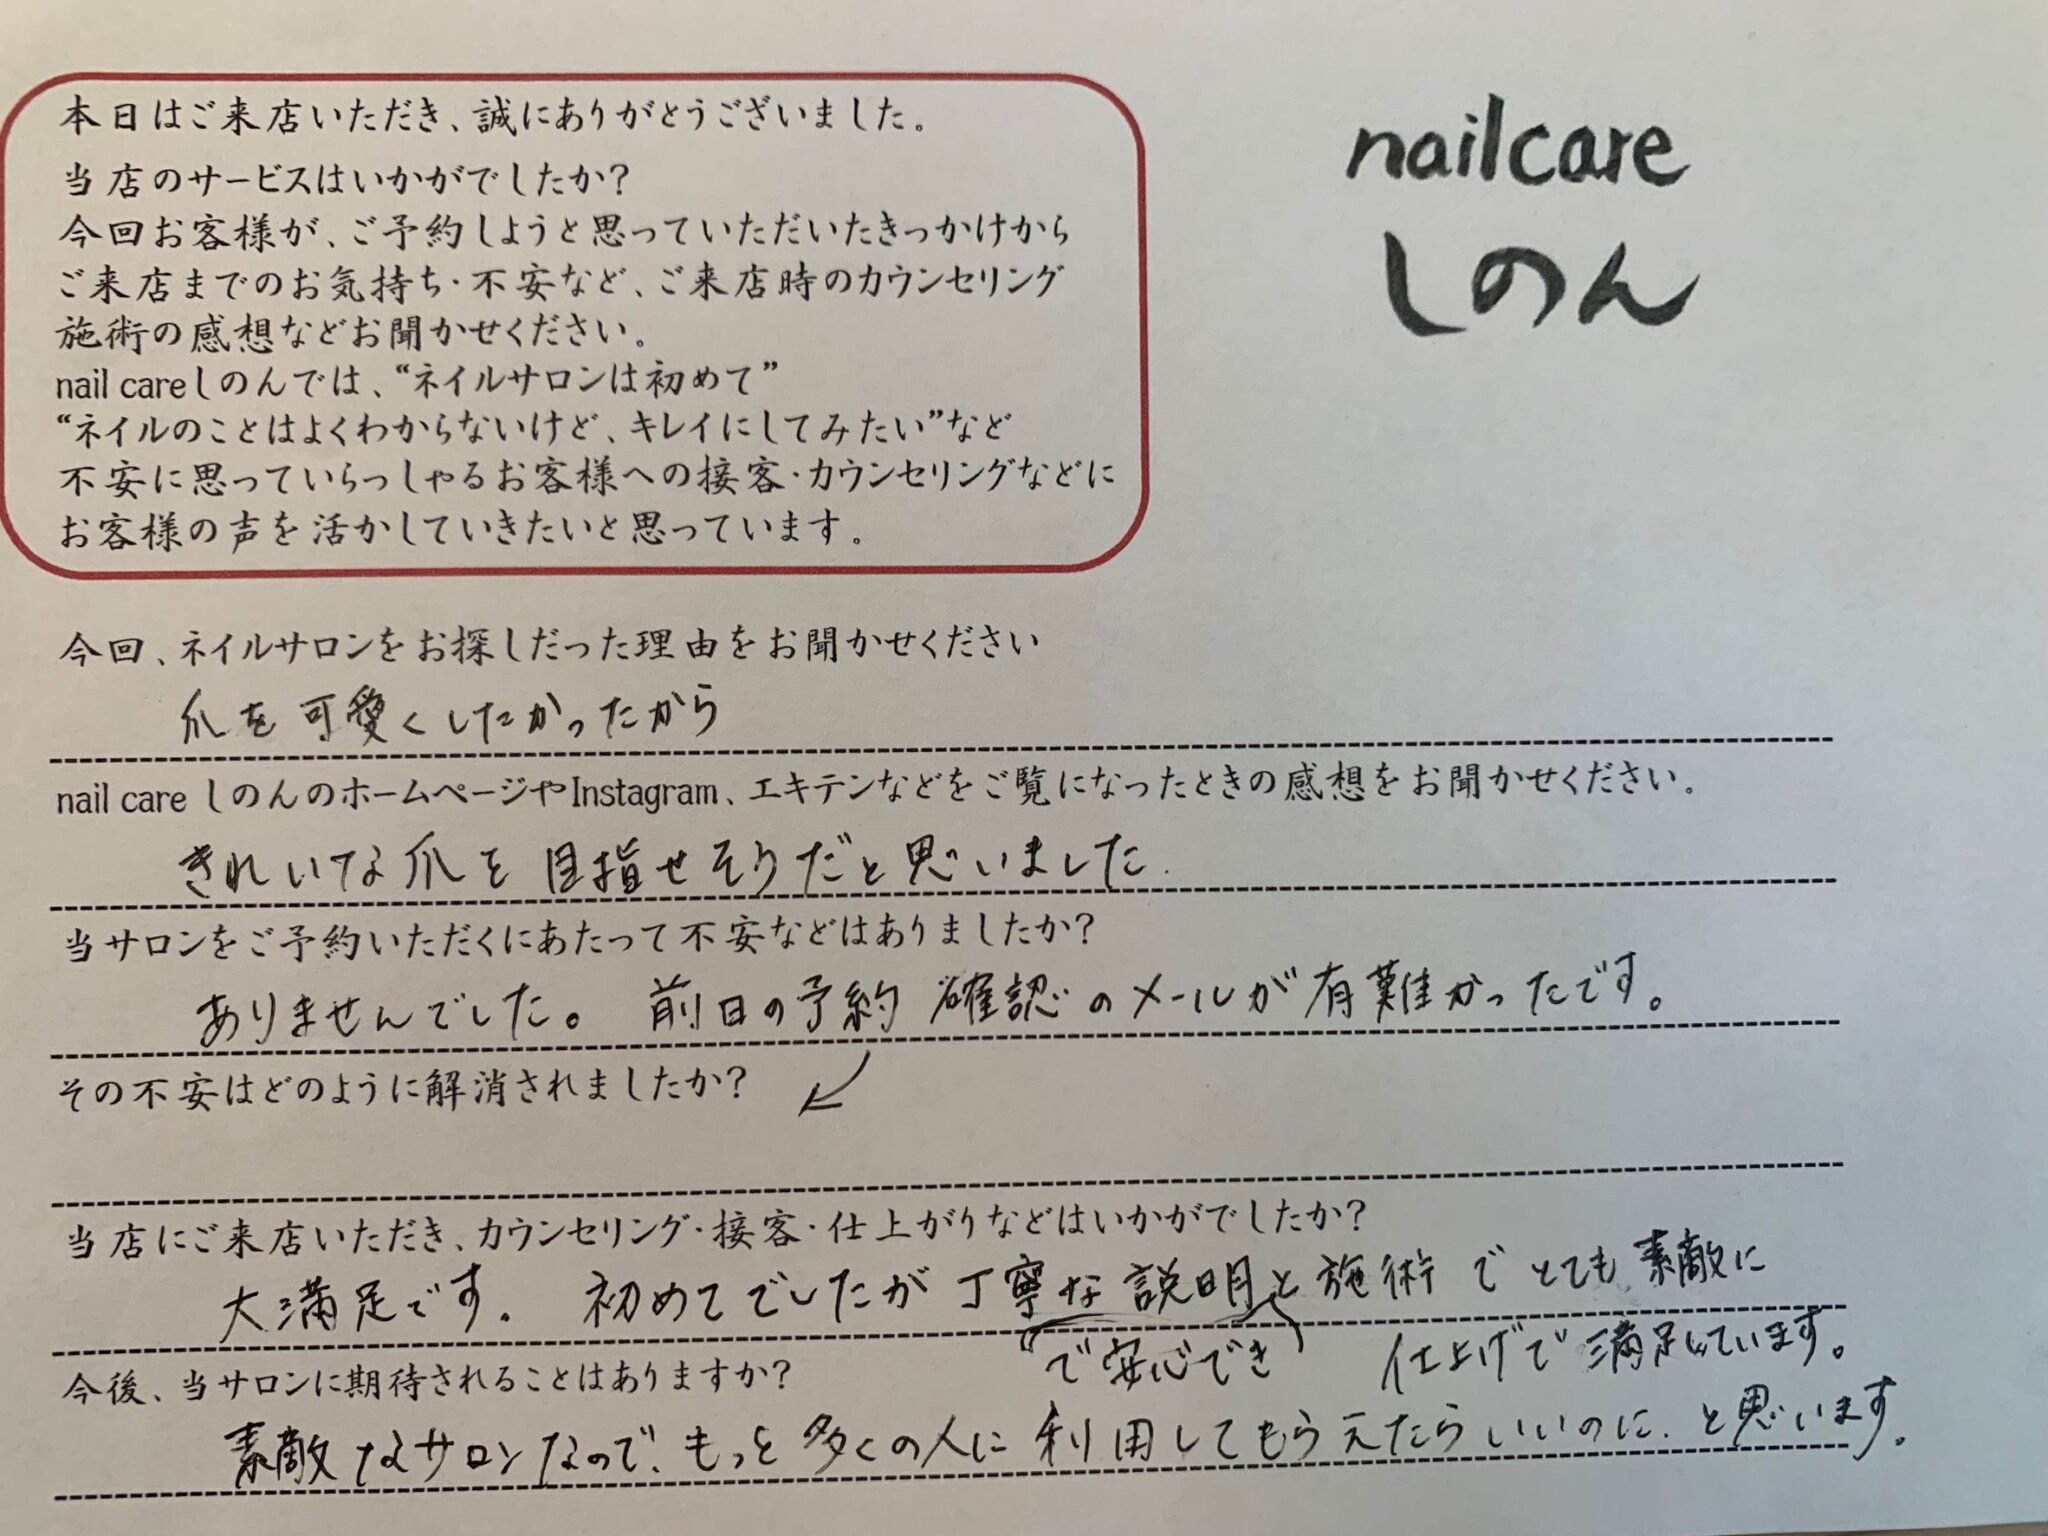 本日はご来店いただき、誠にありがとうございました。
nailcare
しのん
当店のサービスはいかがでしたか?
今回お客様が、ご予約しようと思っていただいたきっかけから
ご来店までのお気持ち・不安など、ご来店時のカウンセリング
施術の感想などお聞かせください。
nail careしのんでは、“ネイルサロンは初めて”
“ネイルのことはよくわからないけど、キレイにしてみたい”など
不安に思っていらっしゃるお客様への接客・カウンセリングなどに
お客様の声を活かしていきたいと思っています。
今回、ネイルサロンをお探しだった理由をお聞かせください
爪を可愛くしたかったから
nail care しのんのホームページやInstagram、エキテンなどをご覧になったときの感想をお聞かせください。
きれいな爪を目指せそうだと思いました.
当サロンをご予約いただくにあたって不安などはありましたか?
ありませんでした。 前日の予約確認のメールが有難かったです。
その不安はどのように解消されましたか?
当店にご来店いただき、カウンセリング・接客・仕上がりなどはいかがでしたか?
大満足です。 初めてでしたが丁寧な説明と施術でとても素敵に
で安心でき 仕上げて満足しています。
今後、当サロンに期待されることはありますか?
素敵なサロンなので、もっと多くの人に利用してもらえたらいいのに.と思います。